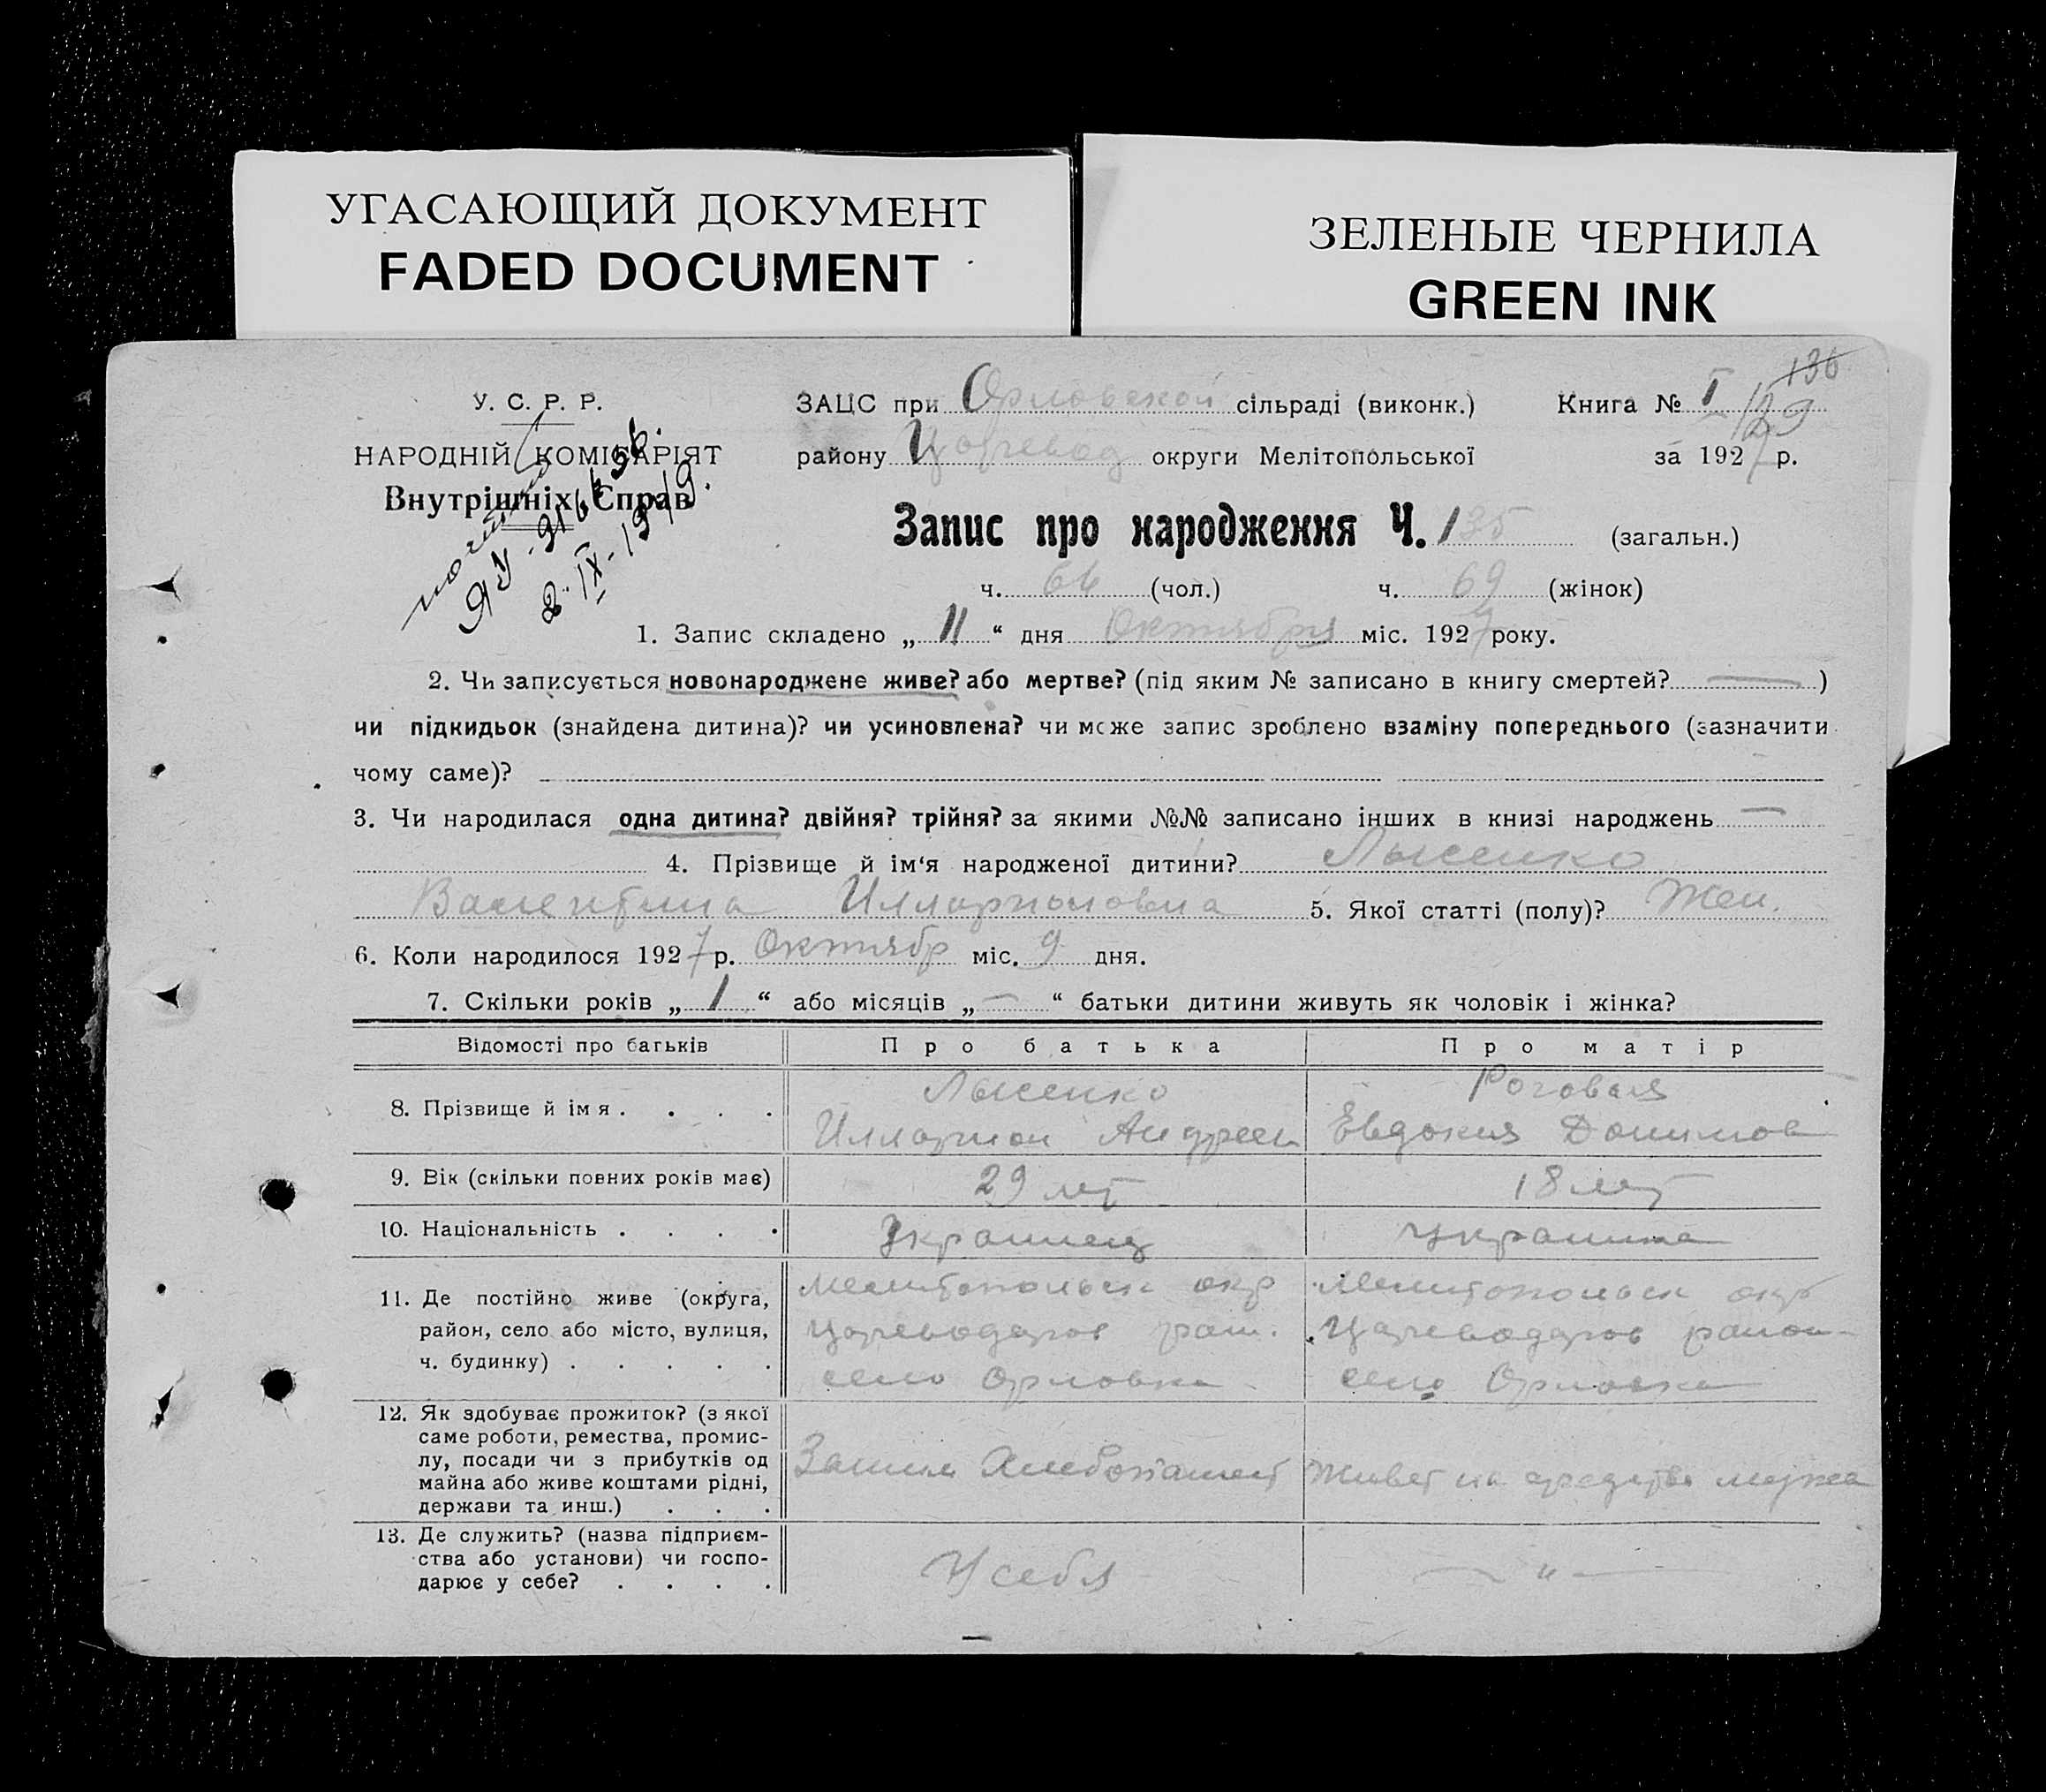 УГАСАЮЩИЙ ДОКУМЕНТ
FADED DOCUMENT
ЗЕЛЕНЫЕ ЧЕРНИЛА
GREEN INK
136
У. С. Р. Р.
НАРОДНІЙ КОМІСАРІЯТ
Внутрішніх Справ
2-IX-19
ЗАЦС при Орловской сільраді (виконк.) Книга № I 129
району Царевод округи Мелітопольської за 1927 р.
Запис про народження Ч. 135 (загальн.)
ч. 66 (чол.) ч. 69 (жінок)
1. Запис складено „ 11 “ дня Октября міс. 1927 року.
2. Чи записується новонароджене живе? або мертве? (під яким № записано в книгу смертей? — )
чи підкидьок (знайдена дитина)? чи усиновлена? чи може запис зроблено взаміну попереднього (зазначити
чому саме)?
3. Чи народилася одна дитина? двійня? трійня? за якими №№ записано інших в книзі народжень —
4. Прізвище й ім‘я народженої дитини? Лысенко
Валентина Илларионовна 5. Якої статті (полу)? Жен.
6. Коли народилося 1927 р. Октябр міс. 9 дня.
7. Скільки років „ 1 “ або місяців „ — “ батьки дитини живуть як чоловік і жінка?
Відомості про батьків Про батька Про матір
8. Прізвище й імя . . . .
Лысенко
Илларион Андреев
Роговая
Евдокия Данилов
9. Вік (скільки повних років має) 29 лет 18 лет
10. Національність . . . . Украинец Украинка
11. Де постійно живе (округа,
район, село або місто, вулиця,
ч. будинку) . . . . .
Мелитопольск окр
Цареводаров рай.
село Орловка
Мелитопольск окр
Цареводаров район
село Орловка
12. Як здобуває прожиток? (з якої
саме роботи, ремества, промис-
лу, посади чи з прибутків од
майна або живе коштами рідні,
держави та инш.) . . .
Заним Хлебопашест
Живет на средства мужа
13. Де служить? (назва підприєм-
ства або установи) чи госпо-
дарює у себе? . . . .
У себя
— „ —